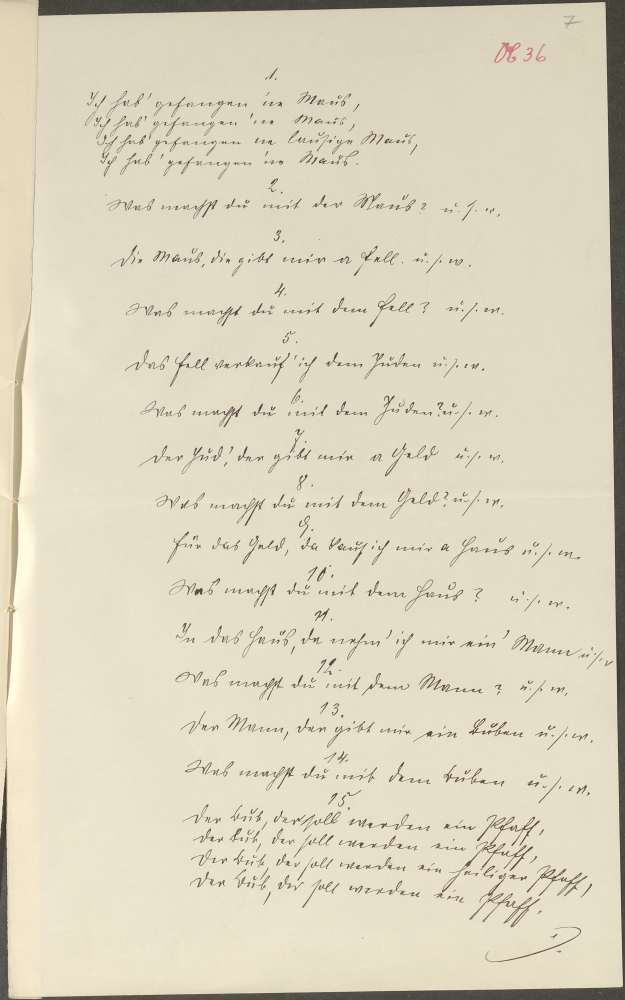 7
Ob 36
1.
Ich hab' gefangen 'ne Maus,
Ich hab' gefangen 'ne Maus,
Ich hab' gefangen ne lausige Maus,
Ich hab' gefangen 'ne Maus.
2.
Was machst du mit der Maus? u. s. w.
3.
Die Maus, die gibt mir a Fell. u. s. w.
4.
Was machst du mit dem Fell? u. s. w.
5.
Das Fell verkauf' ich dem Juden u. s. w.
6.
Was machst du mit dem Juden? u. s. w.
7.
Der Jud', der gibt mir a Geld u. s. w.
8.
Was machst du mit dem Geld? u. s. w.
9.
Für das Geld, da kauf ich mir a Haus u. s. w.
10.
Was machst du mit dem Haus? u. s. w.
11.
In das Haus, da nehm' ich mir ein' Mann u. s. w
12.
Was machst du mit dem Mann? u. s. w.
13.
Der Mann, der gibt mir ein Buben u. s. w.
14.
Was machst du mit dem Buben u. s. w.
15.
Der Bub, der soll werden ein Pfaff,
Der Bub, der soll werden ein Pfaff,
Der Bub, der soll werden ein heiliger Pfaff,
Der Bub, der soll werden ein Pfaff.